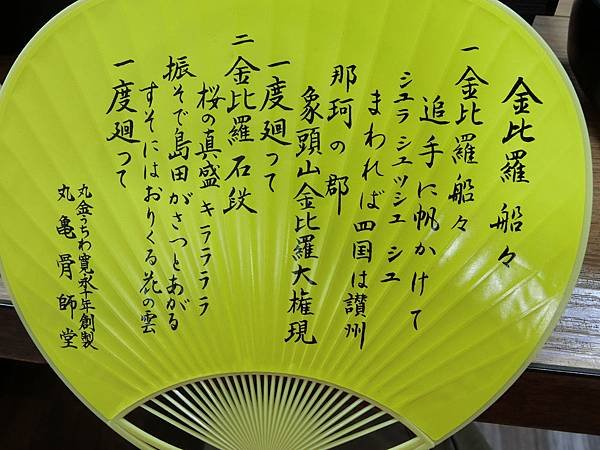 金比羅 船々
一 金比羅船々
追手に帆かけて
シュラ シュッシュ シュ
まわれば四国は讃州
那珂の郡
象頭山金比羅大権現
一度廻って
二 金比羅石段
桜の真盛 キラララ
振そで島田がさっとあがる
すそにはおりくる花の雲
一度廻って
丸金うちわ寛永十年創製
丸亀骨師堂